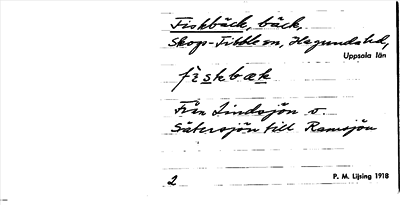 Fiskbäck, bäck,
Skogs-Tibble sn, Hagunda hd,
Uppsala län
fìskbæk
Från Lindsjön o.
Sätersjön till Ramsjön
2 P. M. Lijsing 1918